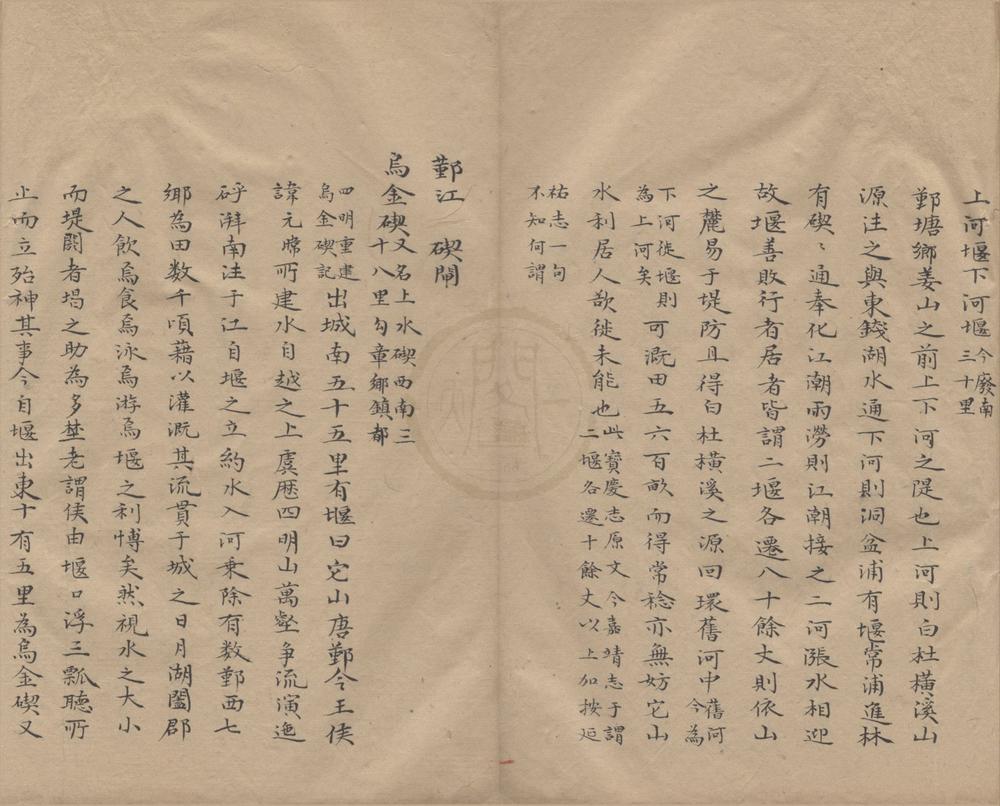 上河堰下河堰今廢南三十里
鄞塘鄉姜山之前上下河之隄也上河則白杜橫溪山
源注之與東錢湖水通下河則洞盆浦有堰常浦進林
有碶〻通奉化江潮雨澇則江潮接之二河漲水相迎
故堰善敗行者居者皆謂二堰各遷八十餘丈則依山
之麓易于堤防且得白杜橫溪之源回環舊河中舊河今為
下河徙堰則為上河矣可溉田五六百畝而得常稔亦無妨它山
水利居人欲徙未能也此寶慶志原文今嘉靖志于謂二堰各遷十餘丈以上加按延
祐志一句不知何謂
鄞江 碶閘
烏金碶又名上水碶西南三十八里勾章鄉鎮都
四明重建烏金碶記出城南五十五里有堰曰它山唐鄞令王侯
諱元暐所建水自越之上虞歷四明山萬壑爭流演迤
砰湃南注于江自堰之立約水入河乘除有数鄞西七
鄉為田数千頃藉以灌溉其流貫于城之日月湖闔郡
之人飲焉食焉泳焉游焉堰之利博矣然視水之大小
而堤閼者堨之助為多埜老謂侯由堰口浮三瓢聽所
止而立殆神其事今自堰出東十有五里為烏金碶又